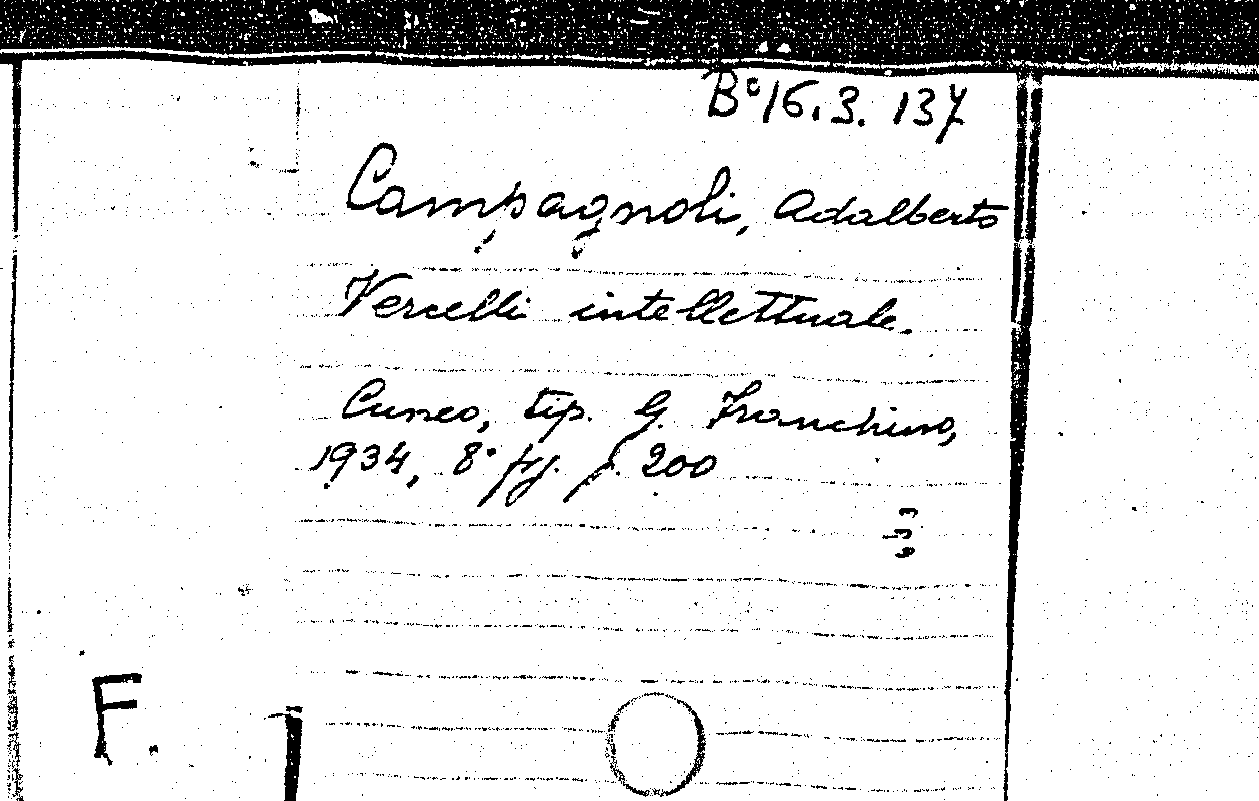 B° 16.3. 137
Campagnoli, Adalberto
Vercelli intellettuale.
Cuneo, tip. G. Franchino,
1934, 8° fig. p. 200
F.